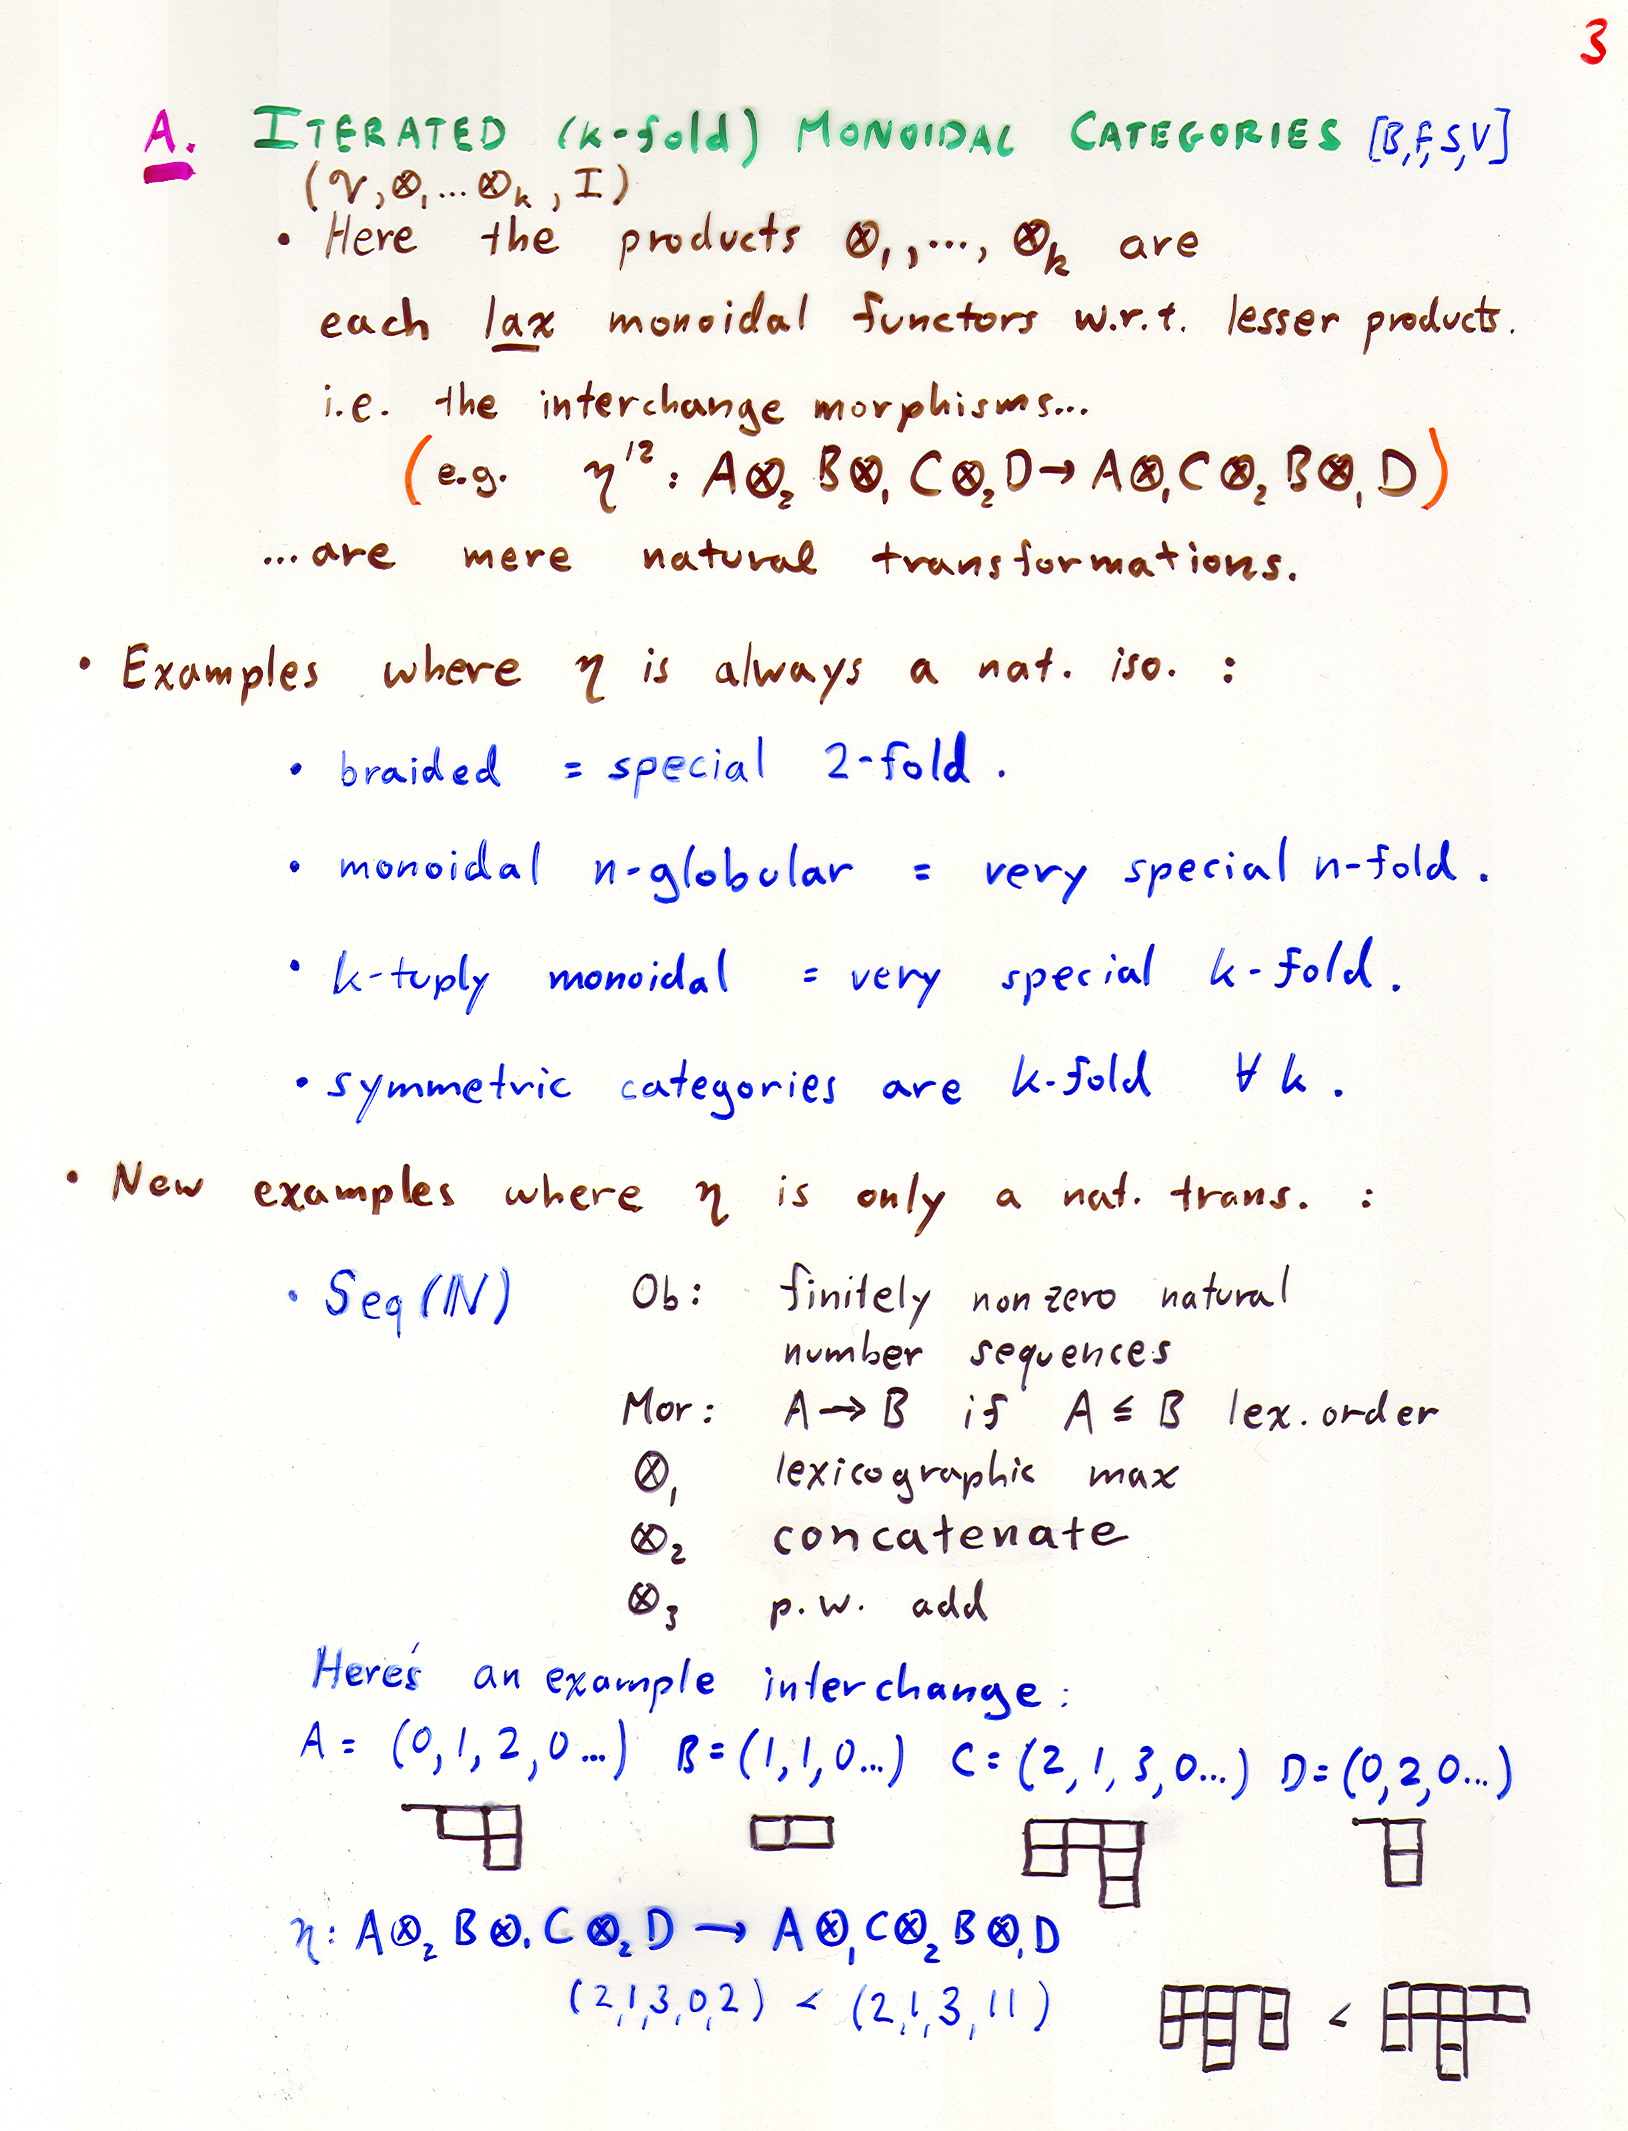 3
A. ITERATED (k-fold) MONOIDAL CATEGORIES [B,F,S,V]
(𝒱, ⊗₁ ... ⊗ₖ, I)
• Here the products ⊗₁, ..., ⊗ₖ are
each lax monoidal functors w.r.t. lesser products.
i.e. the interchange morphisms...
(e.g. η¹²: A⊗₂B⊗₁C⊗₂D → A⊗₁C⊗₂B⊗₁D)
...are mere natural transformations.
• Examples where η is always a nat. iso. :
• braided = special 2-fold.
• monoidal n-globular = very special n-fold.
• k-tuply monoidal = very special k-fold.
• symmetric categories are k-fold ∀ k.
• New examples where η is only a nat. trans. :
• Seq(ℕ) Ob: finitely nonzero natural
number sequences
Mor: A → B if A ≤ B lex. order
⊗₁ lexicographic max
⊗₂ concatenate
⊗₃ p.w. add
Here's an example interchange:
A = (0,1,2,0...) B=(1,1,0...) C=(2,1,3,0...) D=(0,2,0...)
η: A⊗₂B⊗₁C⊗₂D → A⊗₁C⊗₂B⊗₁D
(2,1,3,0,2) < (2,1,3,1 1) <